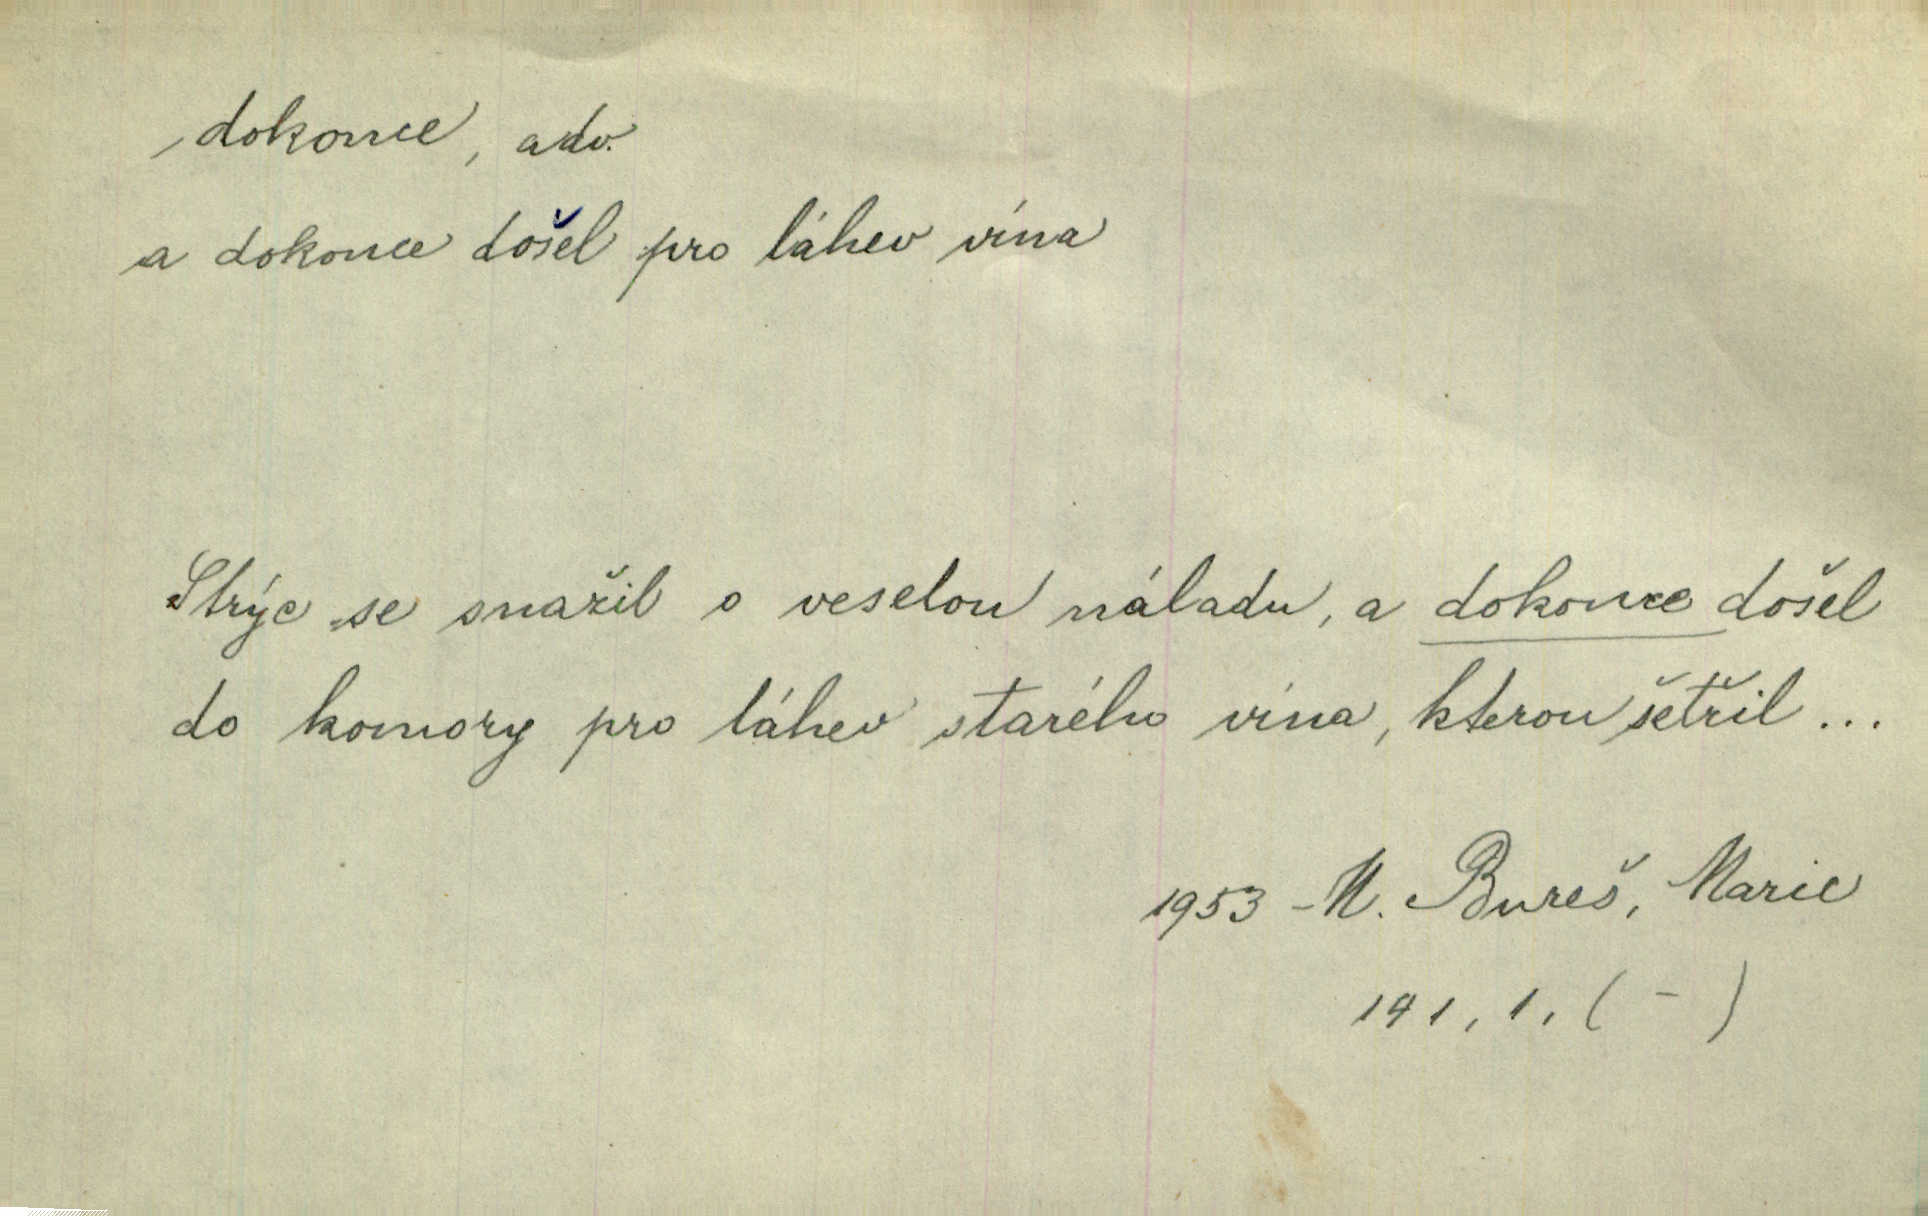 dokonce, adv.
a dokonce došel pro láhev vína
Strýc se snažil o veselou náladu, a dokonce došel
do komory pro láhev starého vína, kterou šetřil ...
1953 - M. Bureš, Marie
141, 1, ( - )